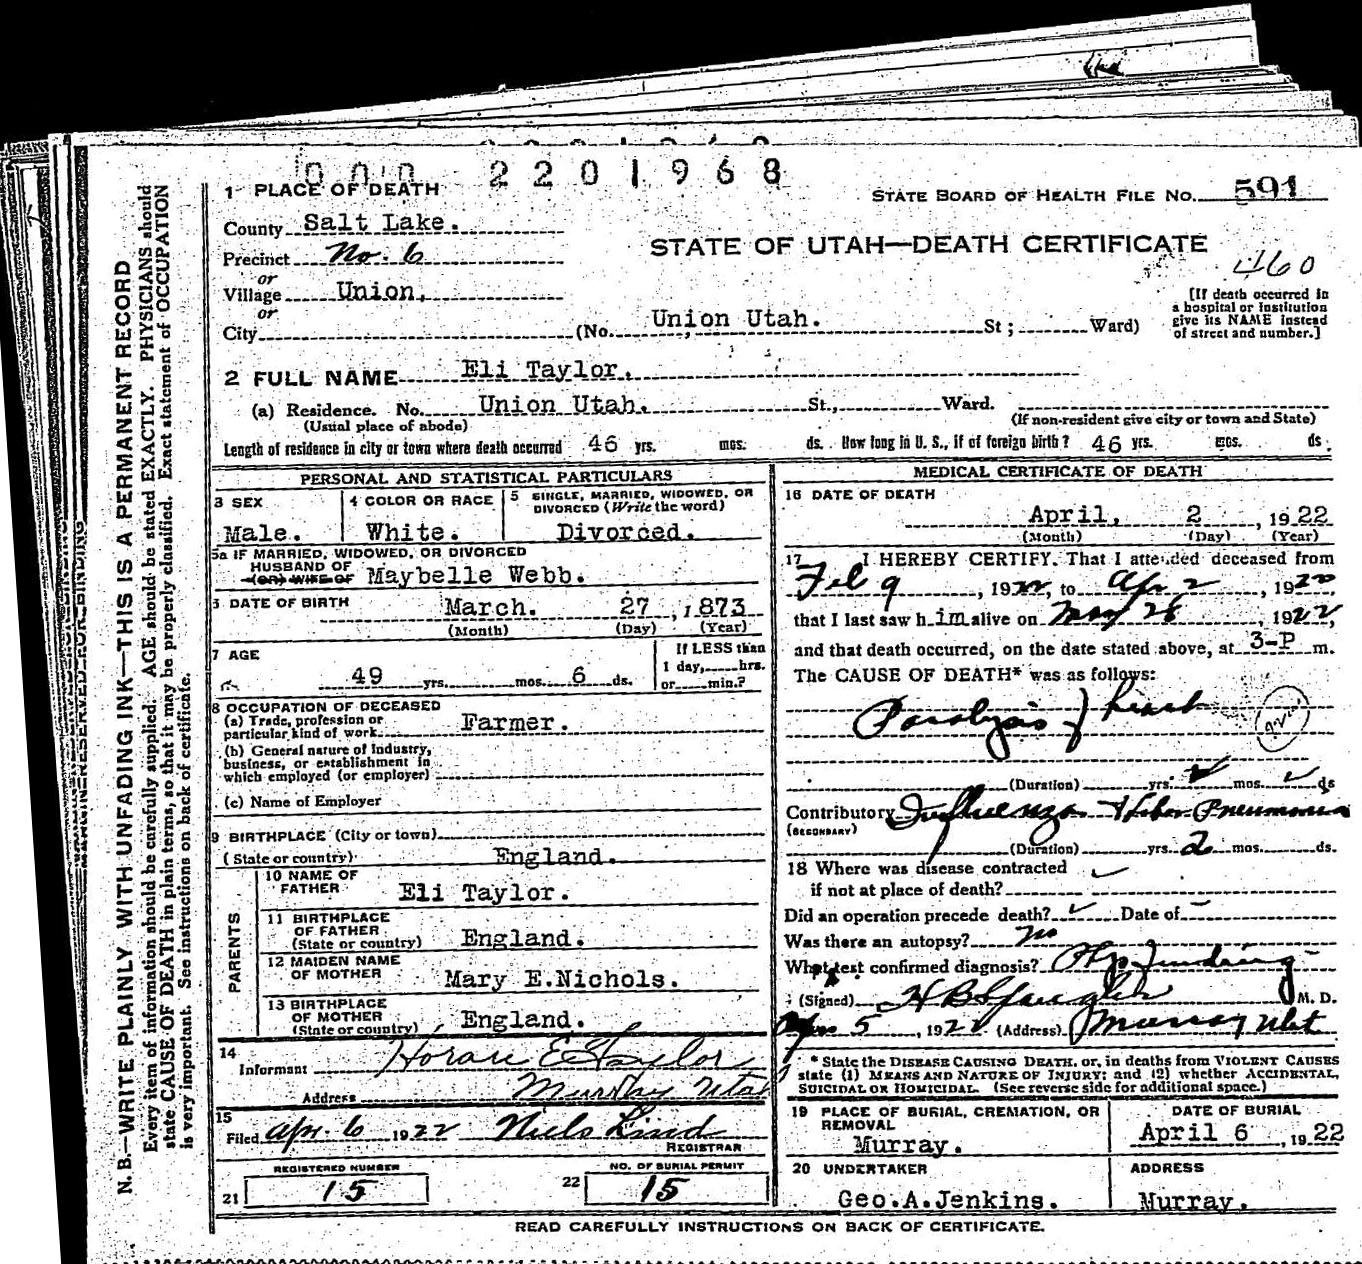 0002201968
1 PLACE OF DEATH
STATE BOARD OF HEALTH FILE No. 591
County Salt Lake.
STATE OF UTAH—DEATH CERTIFICATE
Precinct No. 6
460
or
Village Union,
or
City (No. Union Utah. St; Ward)
[If death occurred in
a hospital or institution
give its NAME instead
of street and number.]
2 FULL NAME Eli Taylor.
(a) Residence. No. Union Utah. St., Ward.
(Usual place of abode)
(If non-resident give city or town and State)
Length of residence in city or town where death occurred 46 yrs. mos. ds. How long in U. S., if of foreign birth? 46 yrs. mos. ds.
PERSONAL AND STATISTICAL PARTICULARS
3 SEX
Male.
4 COLOR OR RACE
White.
5 SINGLE, MARRIED, WIDOWED, OR
DIVORCED (Write the word)
Divorced.
5a IF MARRIED, WIDOWED, OR DIVORCED
HUSBAND OF
(OR) WIFE OF Maybelle Webb.
6 DATE OF BIRTH March. 27, 1873
(Month) (Day) (Year)
7 AGE
49 yrs. mos. 6 ds.
If LESS than
1 day, hrs.
or min.?
8 OCCUPATION OF DECEASED
(a) Trade, profession or
particular kind of work Farmer.
(b) General nature of industry,
business, or establishment in
which employed (or employer)
(c) Name of Employer
9 BIRTHPLACE (City or town)
(State or country) England.
PARENTS
10 NAME OF
FATHER Eli Taylor.
11 BIRTHPLACE
OF FATHER
(State or country) England.
12 MAIDEN NAME
OF MOTHER Mary E.Nichols.
13 BIRTHPLACE
OF MOTHER
(State or country) England.
14
Informant Horace E Taylor
Address Murray Utah
15
Filed Apr. 6 1922 Niels Lind
REGISTRAR
REGISTERED NUMBER
21 15
NO. OF BURIAL PERMIT
22 15
MEDICAL CERTIFICATE OF DEATH
16 DATE OF DEATH
April, 2, 1922
(Month) (Day) (Year)
17 I HEREBY CERTIFY. That I attended deceased from
Feb 9, 1922, to Apr 2, 1922,
that I last saw him alive on May 28, 1922,
and that death occurred, on the date stated above, at 3-P m.
The CAUSE OF DEATH* was as follows:
Paralysis of heart
(Duration) yrs. mos. ds
Contributory Influenza & Lobar Pneumonia
(SECONDARY)
(Duration) yrs. 2 mos. ds.
18 Where was disease contracted
if not at place of death?
Did an operation precede death? Date of
Was there an autopsy? no
What test confirmed diagnosis?
(Signed) H B M. D.
Apr 5, 1922 (Address) Murray Utah
* State the DISEASE CAUSING DEATH, or, in deaths from VIOLENT CAUSES
state (1) MEANS AND NATURE OF INJURY; and (2) whether ACCIDENTAL,
SUICIDAL OR HOMICIDAL. (See reverse side for additional space.)
19 PLACE OF BURIAL, CREMATION, OR
REMOVAL
Murray.
DATE OF BURIAL
April 6, 1922
20 UNDERTAKER
Geo.A.Jenkins.
ADDRESS
Murray.
READ CAREFULLY INSTRUCTIONS ON BACK OF CERTIFICATE.
MARGIN RESERVED FOR BINDING
N. B.—WRITE PLAINLY WITH UNFADING INK—THIS IS A PERMANENT RECORD
Every item of information should be carefully supplied. AGE should be stated EXACTLY. PHYSICIANS should
state CAUSE OF DEATH in plain terms, so that it may be properly classified. Exact statement of OCCUPATION
is very important. See instructions on back of certificate.